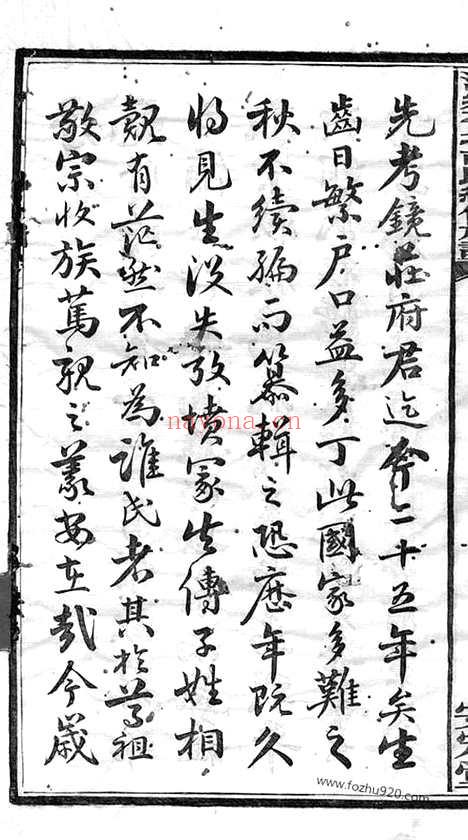 先考鏡莊府君迄今二十五年矣生
齒日繁戶口益多丁此國家多難之
秋不續編而纂輯之恐歷年既久
將見生沒失攷墳冢失傳子姓相
覿有茫然不知為誰氏者其於尊祖
敬宗收族篤親之義安在哉今歲
nayona.cn
www.fozhu920.com